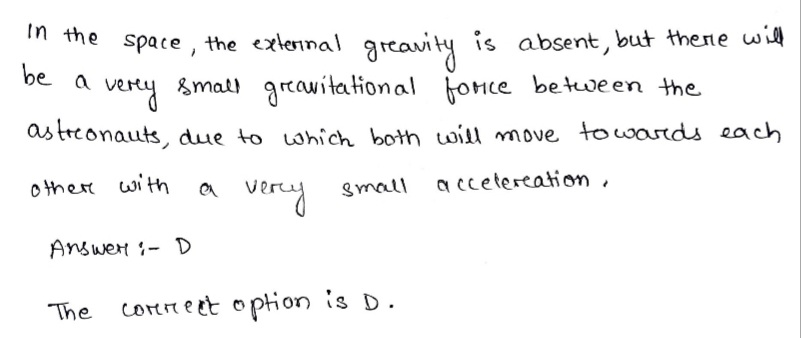 In the space, the external gravity is absent, but there will
be a very small gravitational force between the
astronauts, due to which both will move towards each
other with a very small acceleration.
Answer :- D
The correct option is D.